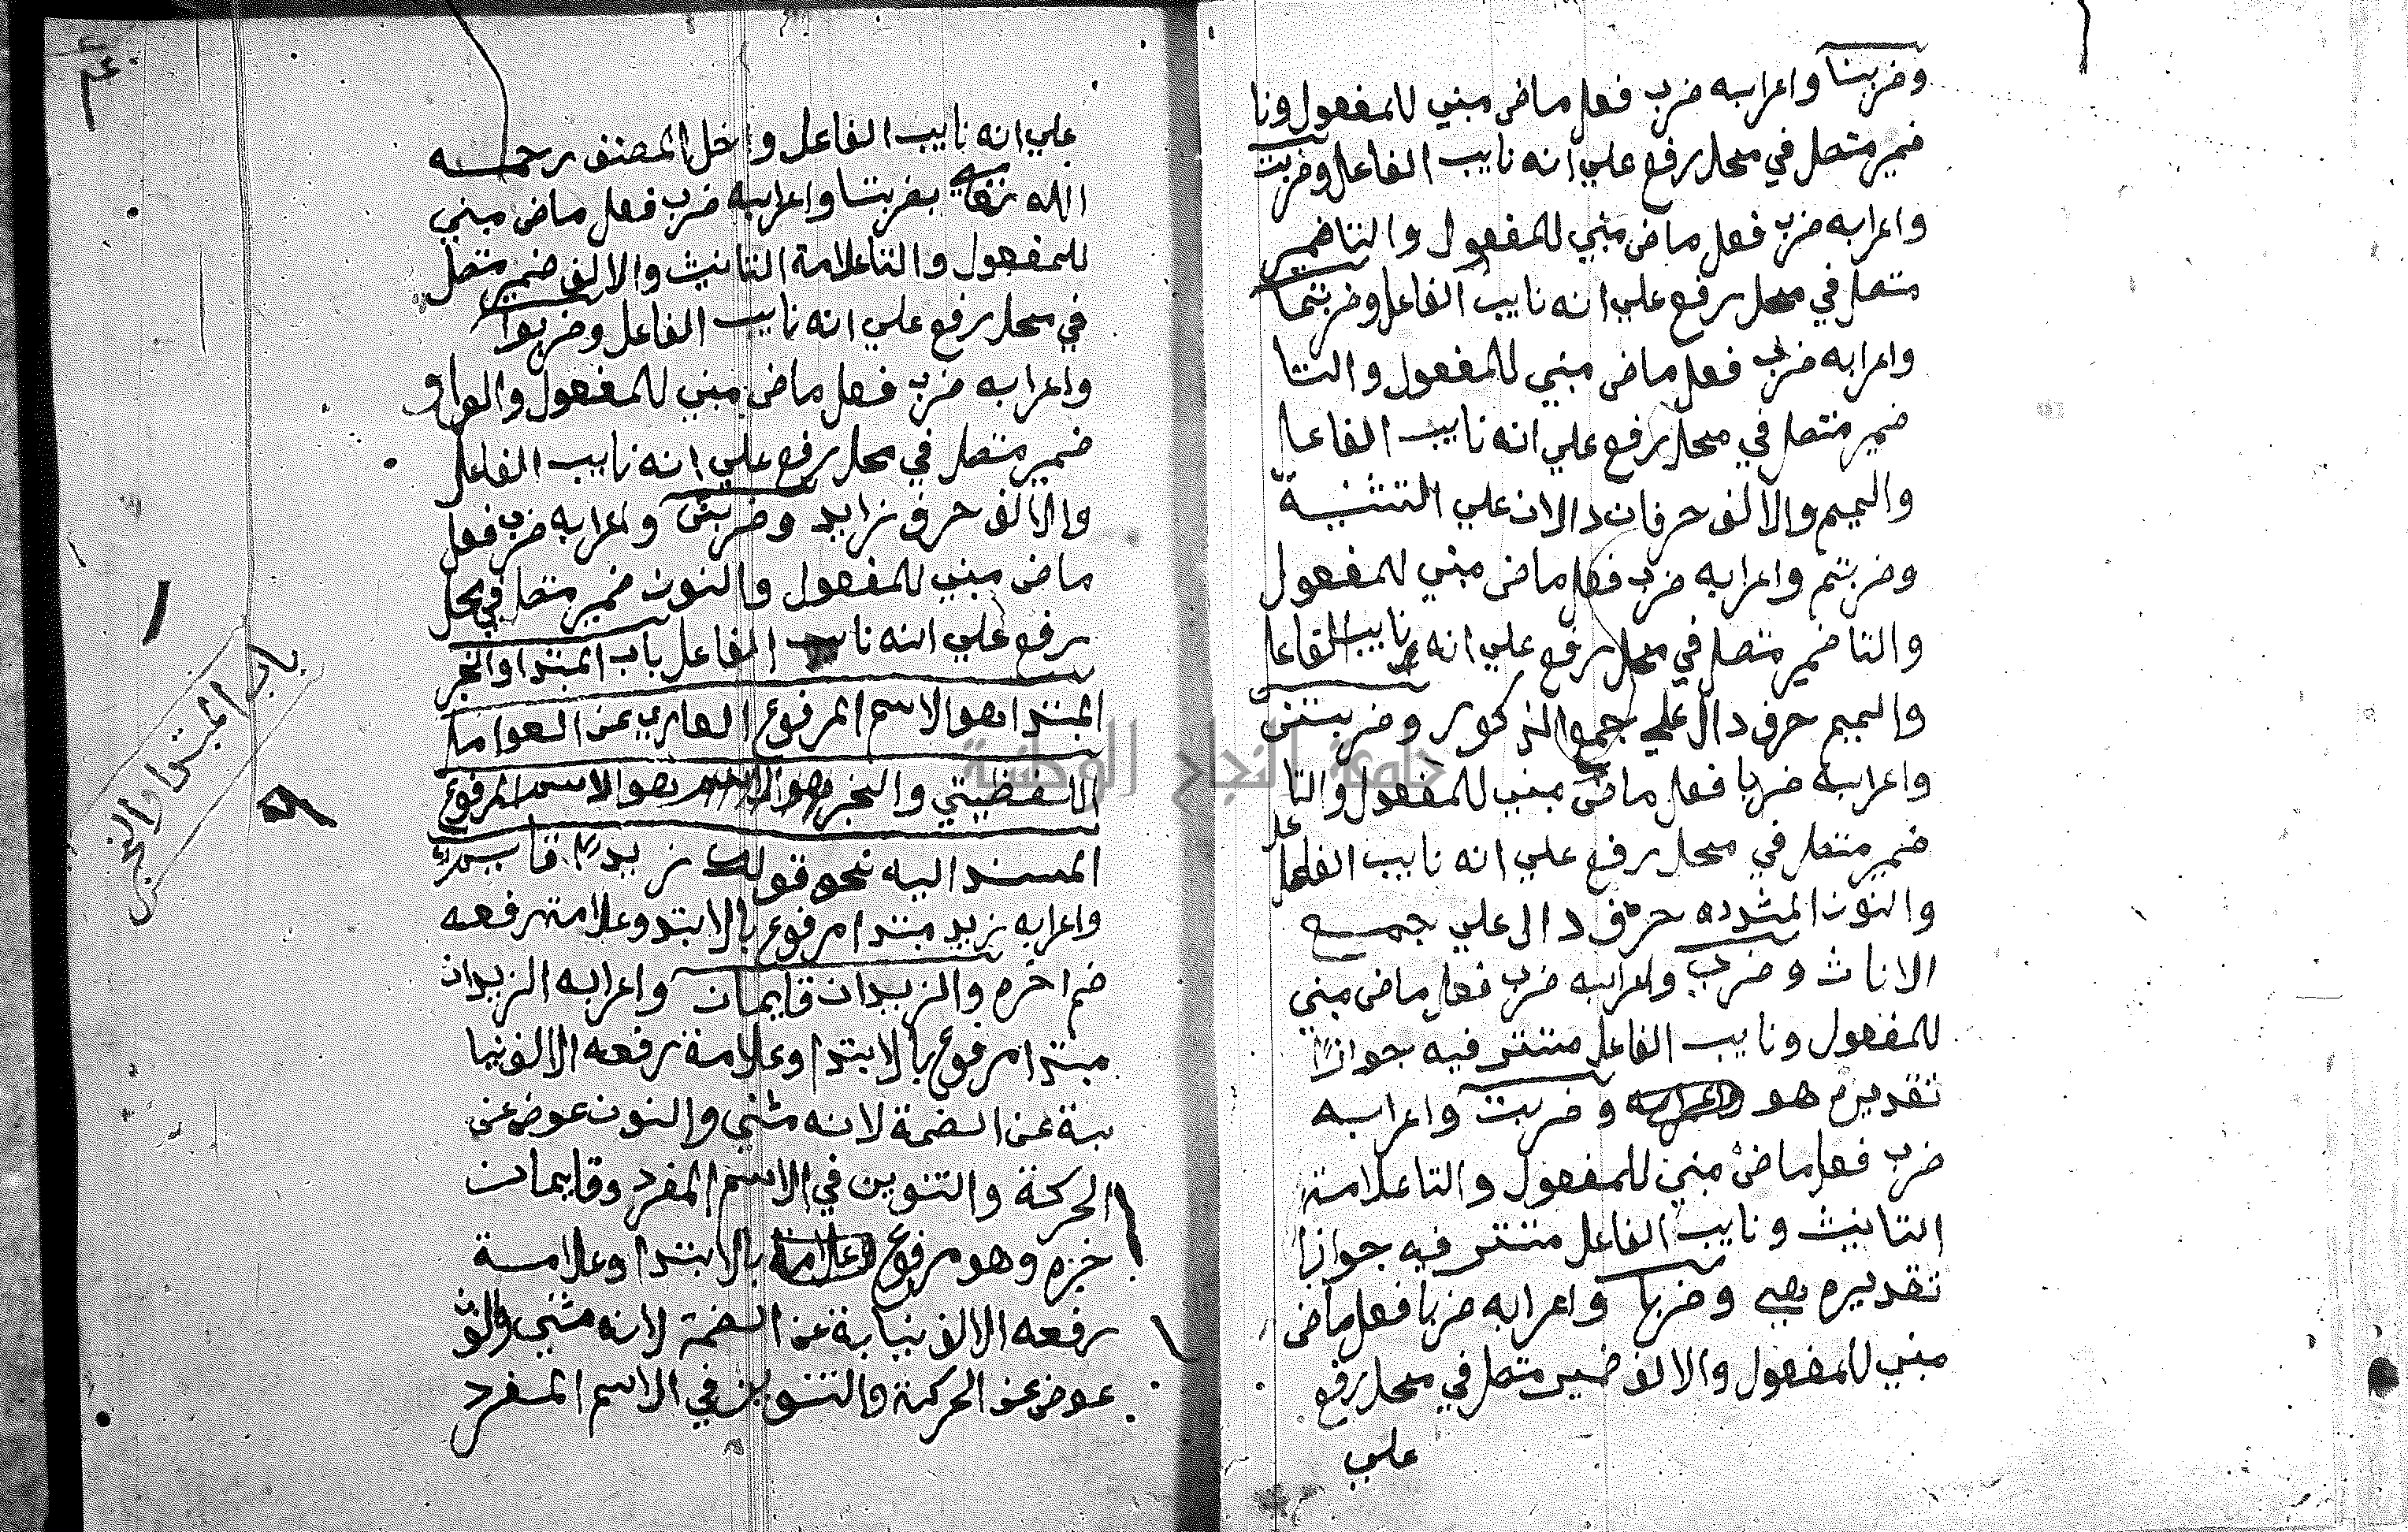 وضربنا واعرابه ضرب فعل ماض مبني للمفعول ونا
ضمير متصل في محل رفع علي انه نايب الفاعل وضربت
واعرابه ضرب فعل ماض مبني للمفعول والتا ضمير
متصل في محل رفع علي انه نايب الفاعل وضربتما
واعرابه ضرب فعل ماض مبني للمفعول والتا
ضمير متصل في محل رفع علي انه نايب الفاعل
والميم والالف حرفان دالان علي التثنية
وضربتم واعرابه ضرب فعل ماض مبني للمفعول
والتا ضمير متصل في محل رفع علي انه نايب الفاعل
والميم حرف دال علي جمع الذكور وضربتن
واعرابه ضربا فعل ماض مبني للمفعول والتا
ضمير متصل في محل رفع علي انه نايب الفاعل
والنون المشدده حرف دال علي جمع
الاناث وضرب واعرابه ضرب فعل ماض مبني
للمفعول ونايب الفاعل مستتر فيه جوازا
تقديره هو وضربت واعرابه
ضرب فعل ماض مبني للمفعول والتا علامة
التانيث ونايب الفاعل مستتر فيه جوازا
تقديره هي وضربا واعرابه ضربا فعل ماض
مبني للمفعول والالف ضمير متصل في محل رفع
علي
علي انه نايب الفاعل واخل المصنف رحمه
الله تعا بضربتا واعرابه ضرب فعل ماض مبني
للمفعول والتا علامة التانيث والالف ضمير متصل
في محل رفع علي انه نايب الفاعل وضربوا
واعرابه ضرب فعل ماض مبني للمفعول والواو
ضمير متصل في محل رفع علي انه نايب الفاعل
والالف حرف زايد وضربن واعرابه ضرب فعل
ماض مبني للمفعول والنون ضمير متصل في محل
رفع علي انه نايب الفاعل باب المبتدا والخبر
المبتدا هو الاسم المرفوع العاري عن العوامل
اللفظيتي والخبر هو الاسم المرفوع
المسند اليه نحو قولك زيد قايم
واعرابه زيد مبتدا مرفوع بالابتد وعلامة رفعه
ضم اخره والزيدان قايمان واعرابه الزيدان
مبتدا مرفوع بالابتدا وعلامة رفعه الالف نيا
بة عن الضمة لانه مثني والنون عوض عن
الحركة والتنوين في الاسم المفرد وقايمان
خبره وهو مرفوع بالابتدا وعلامة
رفعه الالف نيابة عن الضمة لانه مثني والنون
عوض عن الحركة والتنوين في الاسم المفرد
باب المبتدا والخبر
جامعة النجاح الوطنية